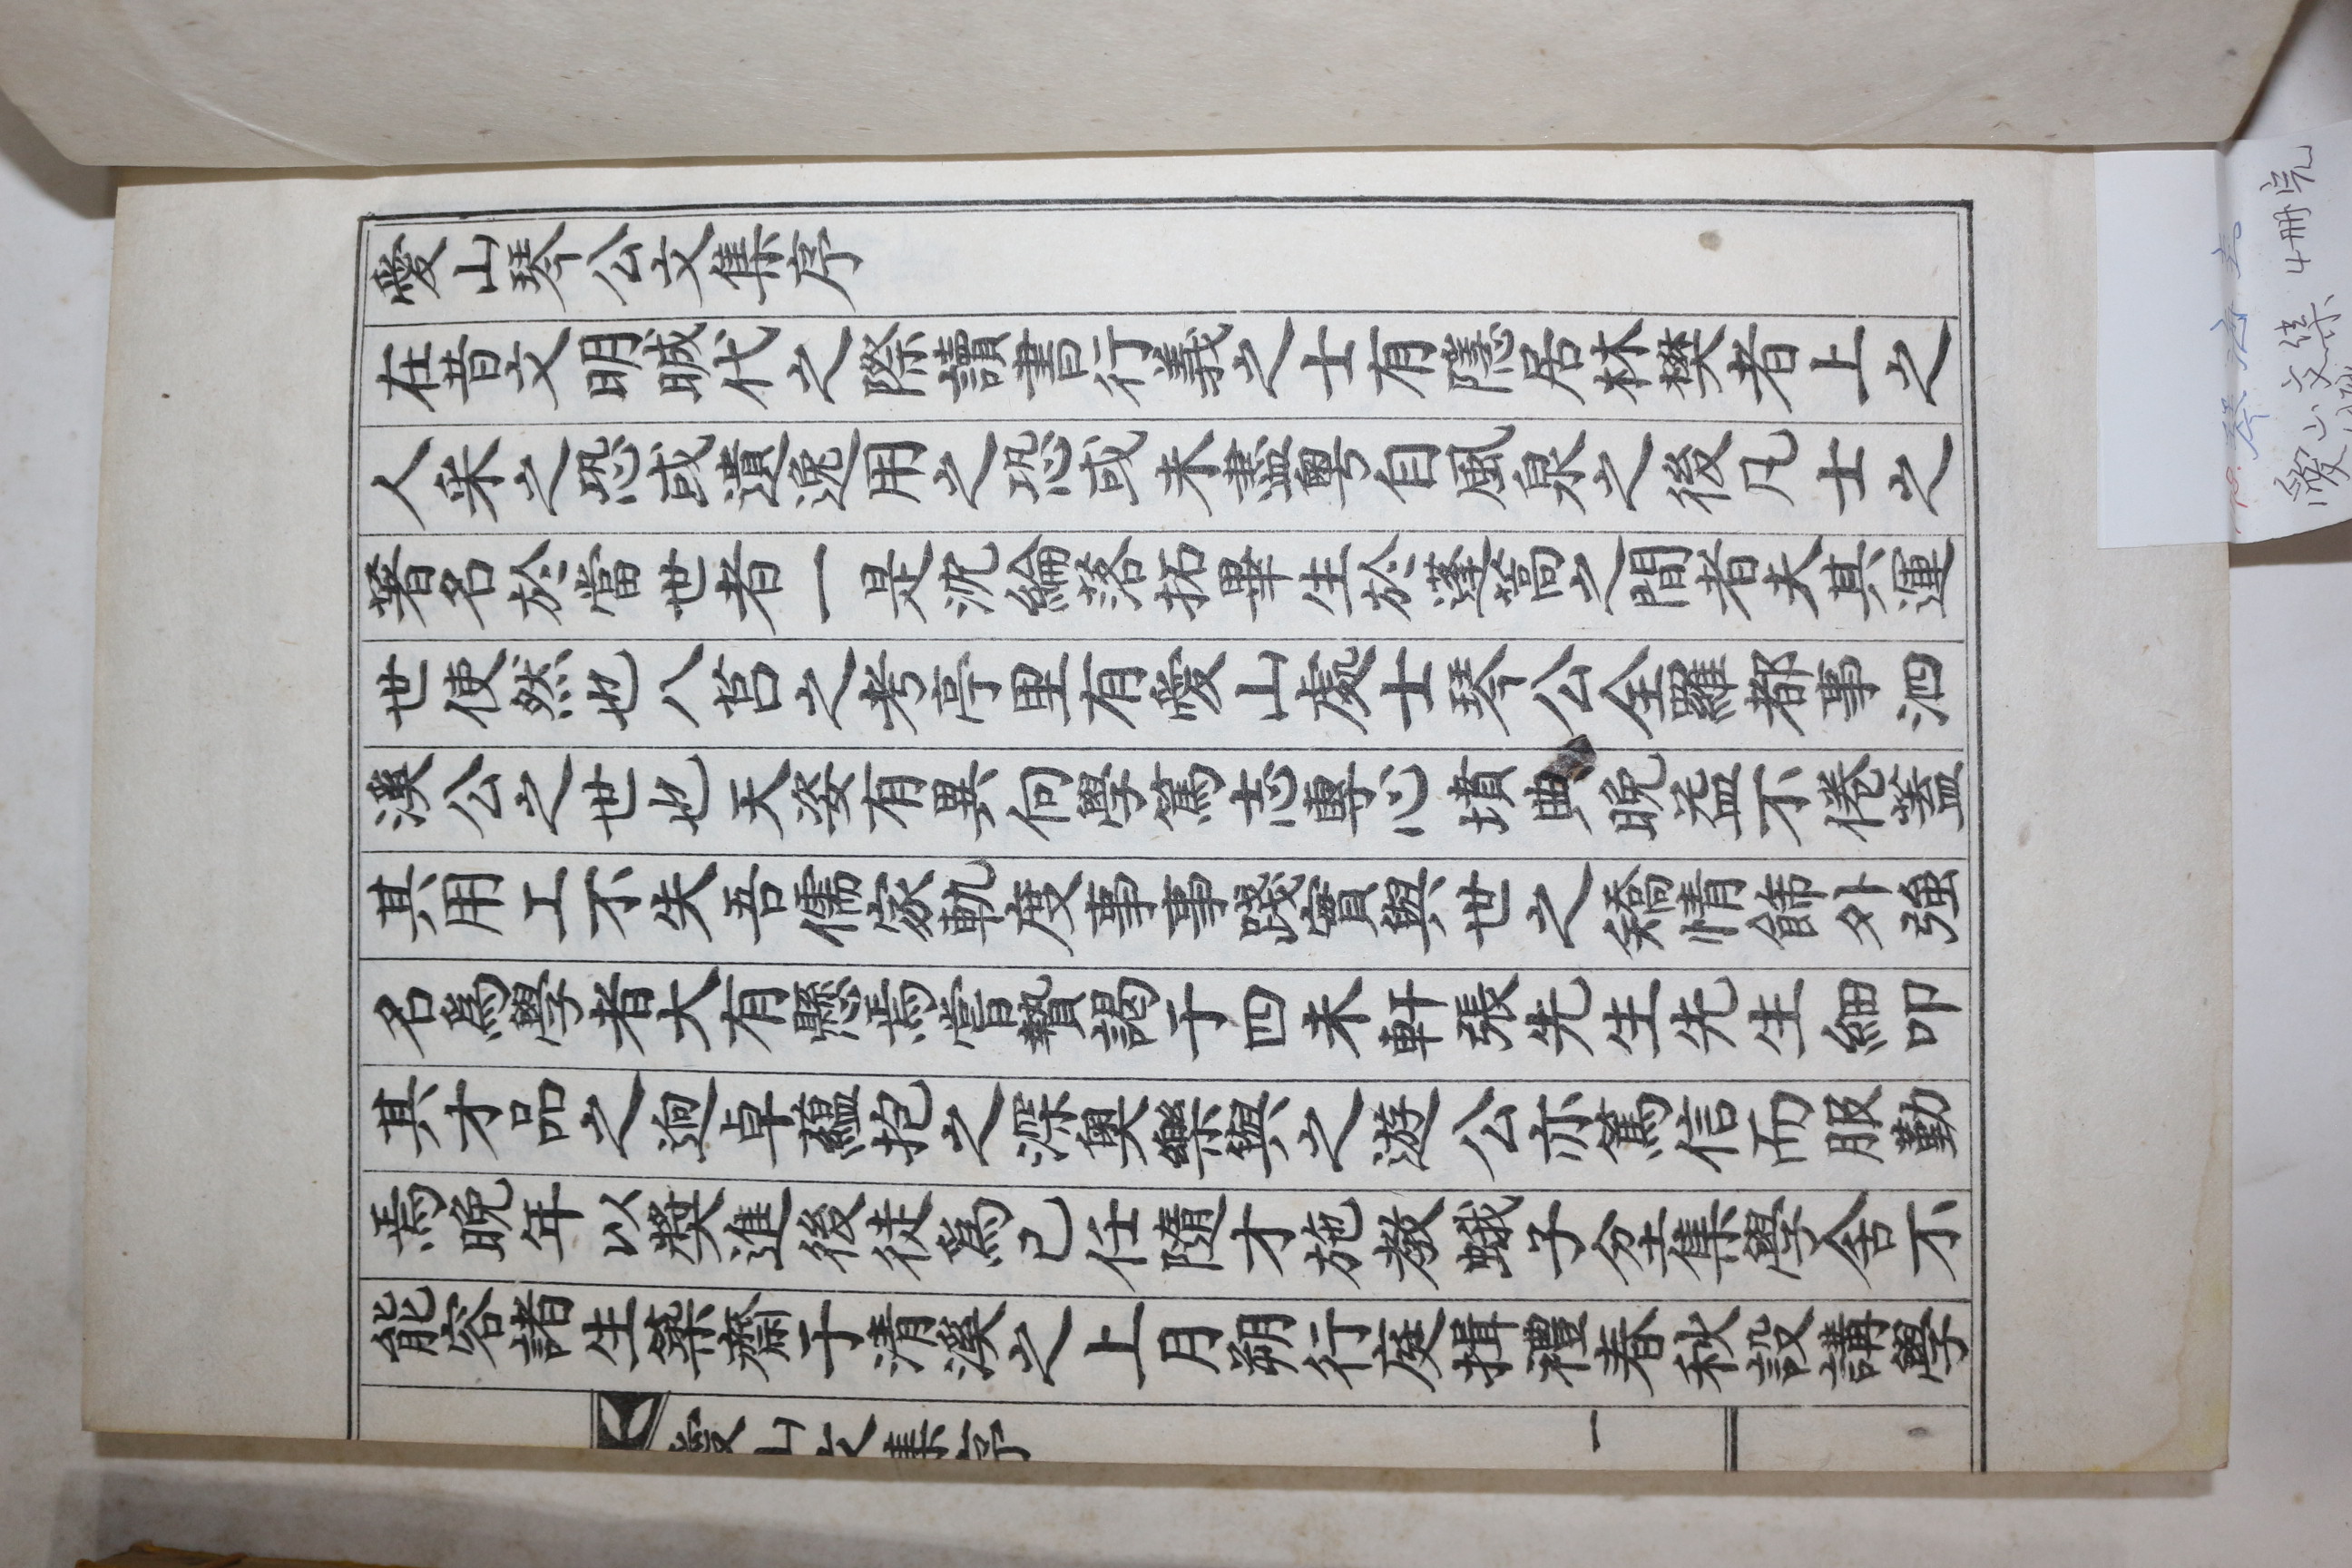 愛山琴公文集序
在昔文明晠代之際讀書行義之士有隱居林樊者上之
人采之恐或遺逸用之恐或未盡粤自風泉之後凡士之
著名於當世者一是沈綸落拓畢生於蓬蒿之間者夫其運
世使然也八莒之考亭里有愛山處士琴公全羅都事泗
溪公之世也天姿有異向學篤志專心墳典晩益不倦蓋
其用工不失吾儒家軌度事事踐實與世之矯情餙外強
名爲學者大有懸焉嘗贄謁于四未軒張先生先生細叩
其才品之逈卓蘊抱之深奧樂與之遊公亦篤信而服勤
焉晩年以奬進後徒爲己任隨才施教蛾子坌集學舍不
能容諸生築齋于清溪之上月朔行庭揖禮春秋設講學
愛山文集序
一
愛山文集 4冊完